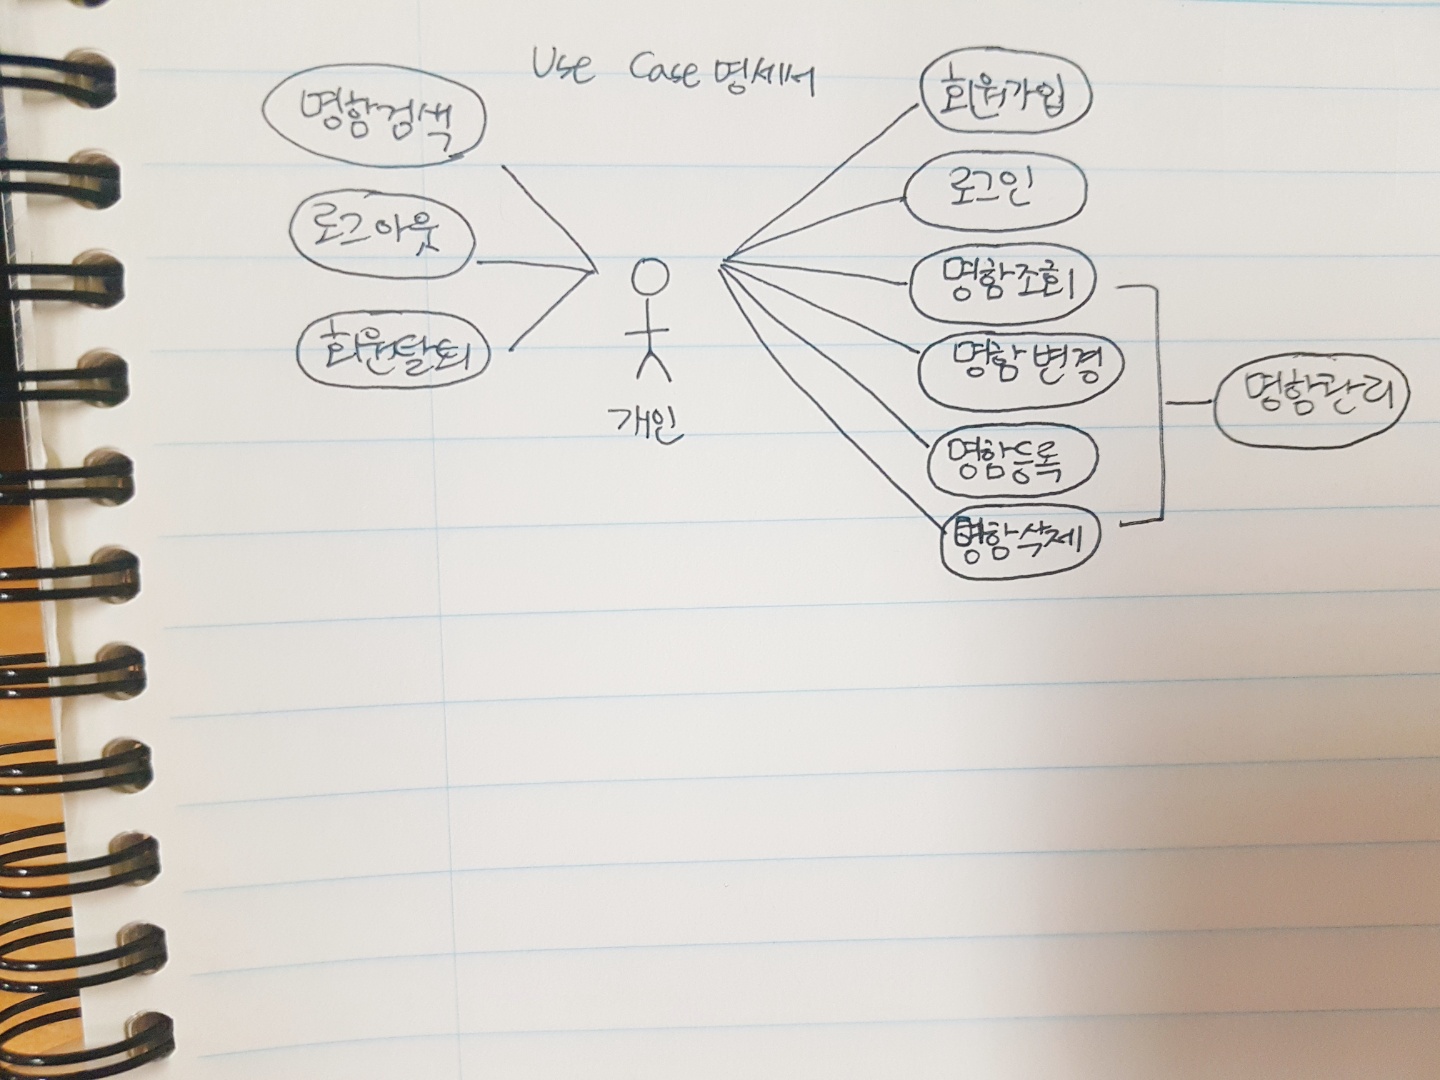 Use Case 명세서
명함검색
로그아웃
회원탈퇴
개인
회원가입
로그인
명함조회
명함변경
명함등록
명함삭제
명함관리